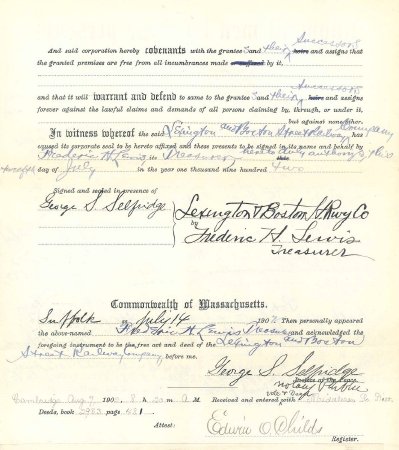 Successors
And said corporation hereby covenants with the grantees and their heirs and assigns that
the granted premises are free from all incumbrances made or suffered by it,
Successors
and that it will warrant and defend to same to the grantees and their heirs and assigns
forever against the lawful claims and demands of all persons claiming by, through, or under it,
but against none other.
In witness whereof the said Lexington and Boston Street Railway Company has
caused its corporate seal to be hereto affixed and these presents to be signed in its name and behalf by
Frederic H. Lewis its Treasurer hereto duly authorized this
twelfth day of July in the year one thousand nine hundred two
Signed and sealed in presence of
George S. Selfridge
Lexington & Boston St Rwy Co
by
Frederic H. Lewis
Treasurer
Commonwealth of Massachusetts.
Suffolk ss July 14 1902 Then personally appeared
the above-named Frederic H. Lewis Treasurer and acknowledged the
foregoing instrument to be the free act and deed of the Lexington and Boston
Street Railway Company before me.
George S. Selfridge
Justice of the Peace
Notary Public
Cambridge Aug 7 190 8 A M. Received and entered with Middlesex So. Dist.
Deeds, book 2983 page 481
Attest: Edwin O. Childs
Register.